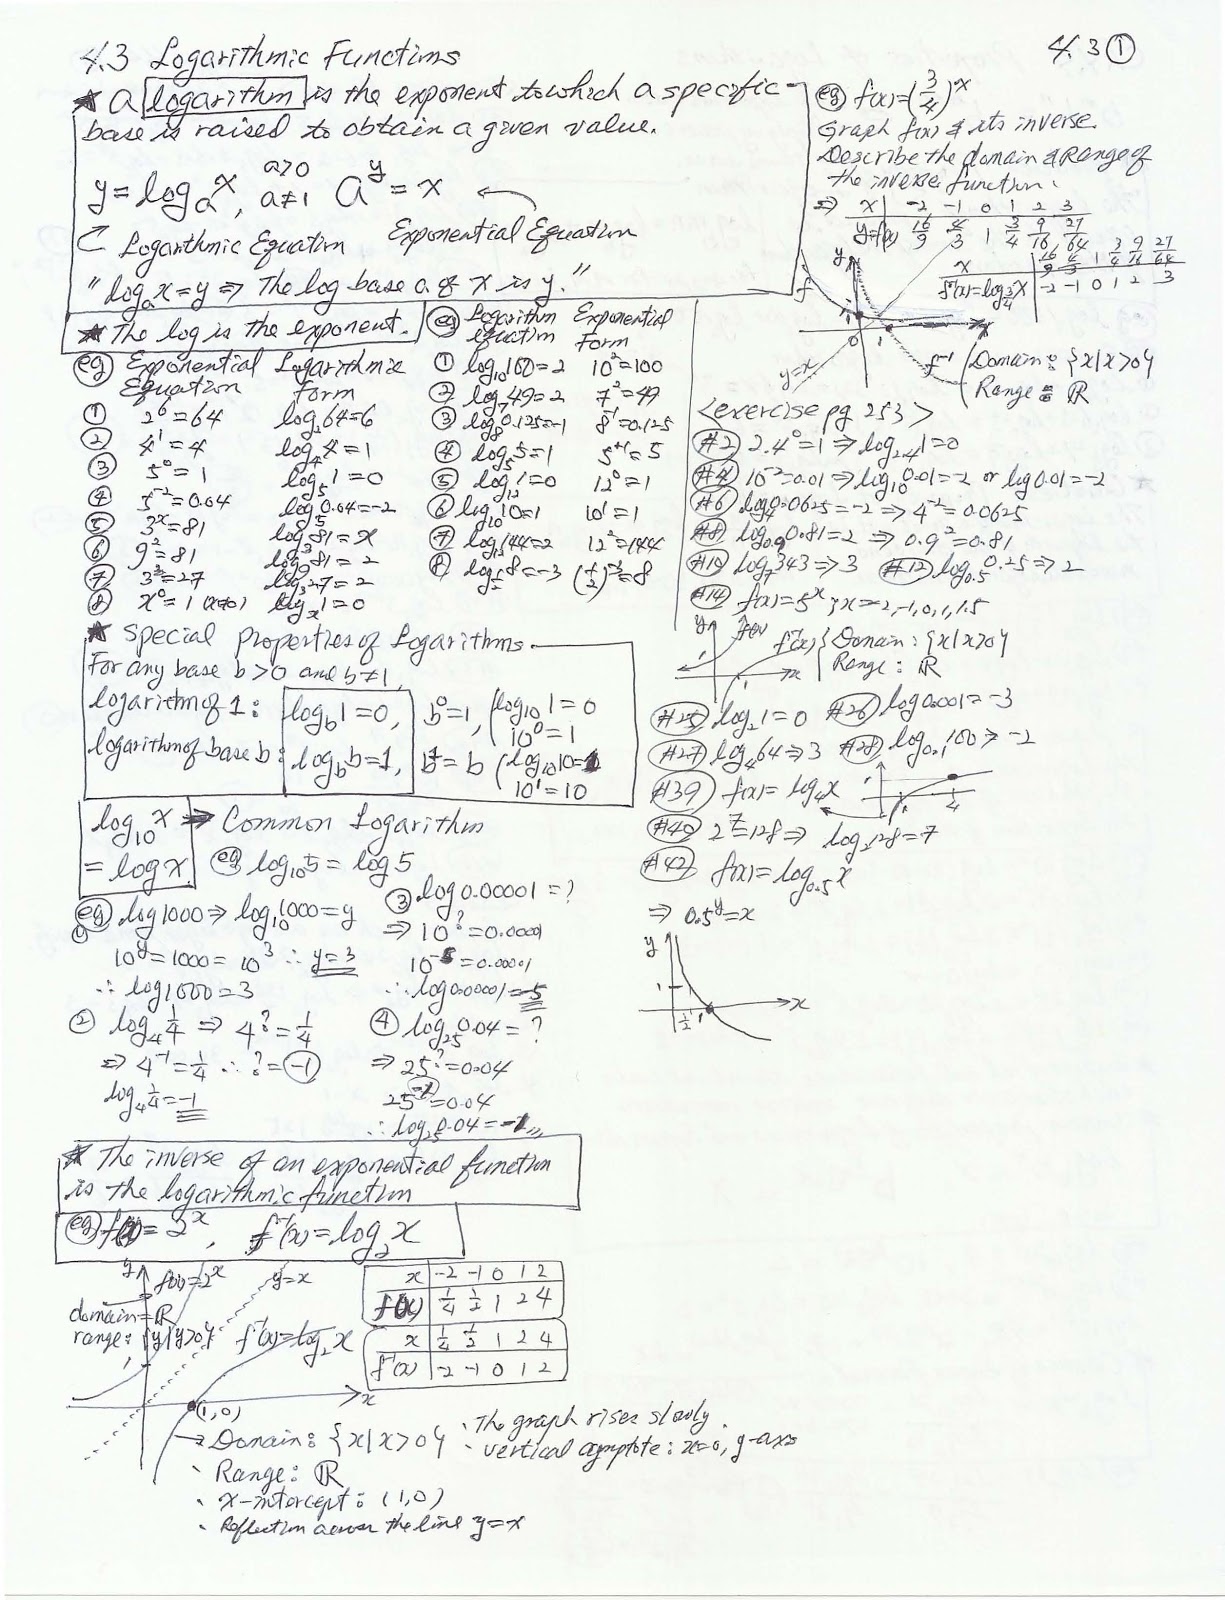 4.3 Logarithmic Functions
4.3 ①
★ a logarithm is the exponent to which a specific
base is raised to obtain a given value.
y = logₐx, a>0 a≠1 a^y = x
Logarithmic Equation Exponential Equation
"logₐx = y ⇒ The log base a of x is y."
★ The log is the exponent.
eg Exponential Equation Logarithmic Form
① 2⁶=64 log₂64=6
② 4¹=4 log₄4=1
③ 5⁰=1 log₅1=0
④ 5⁻²=0.04 log₅0.04=-2
⑤ 3ˣ=81 log₃81=x
⑥ 9²=81 log₉81=2
⑦ 3³=27 log₃27=2
⑧ x⁰=1 (x≠0) logₓ1=0
eg Logarithm Equation Exponential Form
① log₁₀100=2 10²=100
② log₇49=2 7²=49
③ log₈0.125=-1 8⁻¹=0.125
④ log₅5=1 5⁺¹=5
⑤ log₁₂1=0 12⁰=1
⑥ log₁₀10=1 10¹=1
⑦ log₁₂144=2 12²=144
⑧ log½8=-3 (½)⁻³=8
★ Special properties of Logarithms
For any base b>0 and b≠1,
logarithm of 1: log_b1=0, b⁰=1, (log₁₀1=0
10⁰=1
logarithm of base b: log_bb=1, b¹=b (log₁₀10=1
10¹=10
log₁₀x ⇒ Common Logarithm
= logx eg log₁₀5 = log5
eg ① log1000 ⇒ log₁₀1000=y
10^y=1000=10³ ∴ y=3
∴ log1000=3
② log₄¼ ⇒ 4^?=¼
⇒ 4⁻¹=¼ ∴ ?=-1
log₄¼=-1
③ log0.00001=?
⇒ 10^?=0.00001
10⁻⁵=0.00001
∴ log0.00001=-5
④ log₂₅0.04=?
⇒ 25^?=0.04
25⁻¹=0.04
∴ log₂₅0.04=-1
★ The inverse of an exponential function
is the logarithmic function
eg f(x)=2ˣ, f⁻¹(x)=log₂x
y f(x)=2ˣ y=x
domain=ℝ
range: {y|y>0}
f⁻¹(x)=log₂x
1
x
(1,0)
x -2 -1 0 1 2
f(x) ¼ ½ 1 2 4
x ¼ ½ 1 2 4
f⁻¹(x) -2 -1 0 1 2
→ Domain: {x|x>0}
· Range: ℝ
· x-intercept: (1,0)
· Reflection across the line y=x
· The graph rises slowly.
· vertical asymptote: x=0, y-axis
eg f(x)=(3/4)ˣ
Graph f(x) & its inverse.
Describe the domain & Range of
the inverse function.
⇒ x -2 -1 0 1 2 3
y=f(x) 16/9 4/3 1 3/4 9/16 27/64
x 16/9 4/3 1 3/4 9/16 27/64
f⁻¹(x)=log¾x -2 -1 0 1 2 3
y
f
1
0 1
x
y=x
f⁻¹
Domain: {x|x>0}
Range: ℝ
<exercise pg 253>
#2 2.4⁰=1 ⇒ log₂.₄1=0
#4 10⁻²=0.01 ⇒ log₁₀0.01=-2 or log0.01=-2
#6 log₄0.0625=-2 ⇒ 4⁻²=0.0625
#8 log₀.₉0.81=2 ⇒ 0.9²=0.81
#10 log₇343 ⇒ 3 #12 log₀.₅0.25 ⇒ 2
#14 f(x)=5ˣ; x=-2,-1,0,1,1.5
y f(x)
1
1 x
f⁻¹(x) { Domain: {x|x>0}
Range: ℝ
#25 log₂1=0 #26 log0.001=-3
#27 log₄64 ⇒ 3 #28 log₀.₁100 ⇒ -2
#39 f(x)=log₄x
1
1 4
#40 2⁷=128 ⇒ log₂128=7
#42 f(x)=log₀.₅x
⇒ 0.5^y=x
y
1
½ 1
x